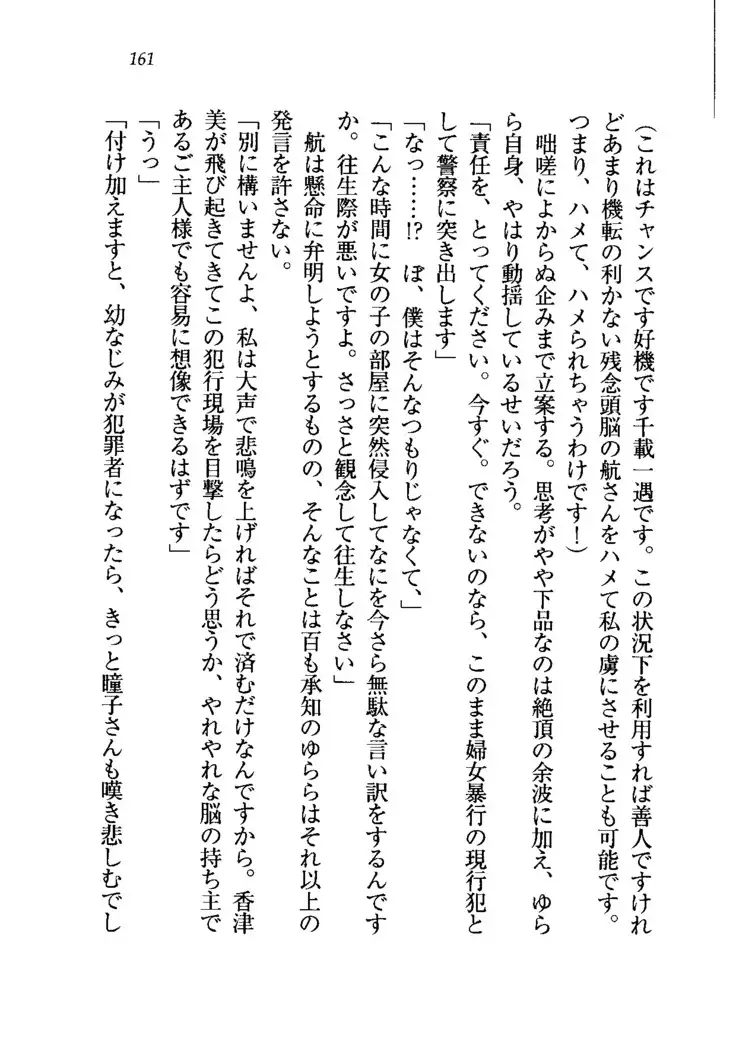 161
(これはチャンスです好機です千載一遇です。この状況下を利用すれば善人ですけれ
どあまり機転の利かない残念頭脳の航さんをハメて私の虜にさせることも可能です。
つまり、ハメて、ハメられちゃうわけです！)
　咄嗟によからぬ企みまで立案する。思考がやや下品なのは絶頂の余波に加え、ゆら
ら自身、やはり動揺しているせいだろう。
「責任を、とってください。今すぐ。できないのなら、このまま婦女暴行の現行犯と
して警察に突き出します」
「なっ……!?　ぼ、僕はそんなつもりじゃなくて、」
「こんな時間に女の子の部屋に突然侵入してなにを今さら無駄な言い訳をするんです
か。往生際が悪いですよ。さっさと観念して往生しなさい」
　航は懸命に弁明しようとするものの、そんなことは百も承知のゆららはそれ以上の
発言を許さない。
「別に構いませんよ、私は大声で悲鳴を上げればそれで済むだけなんですから。香津
美が飛び起きてきてこの犯行現場を目撃したらどう思うか、やれやれな脳の持ち主で
あるご主人様でも容易に想像できるはずです」
「うっ」
「付け加えますと、幼なじみが犯罪者になったら、きっと瞳子さんも嘆き悲しむでし